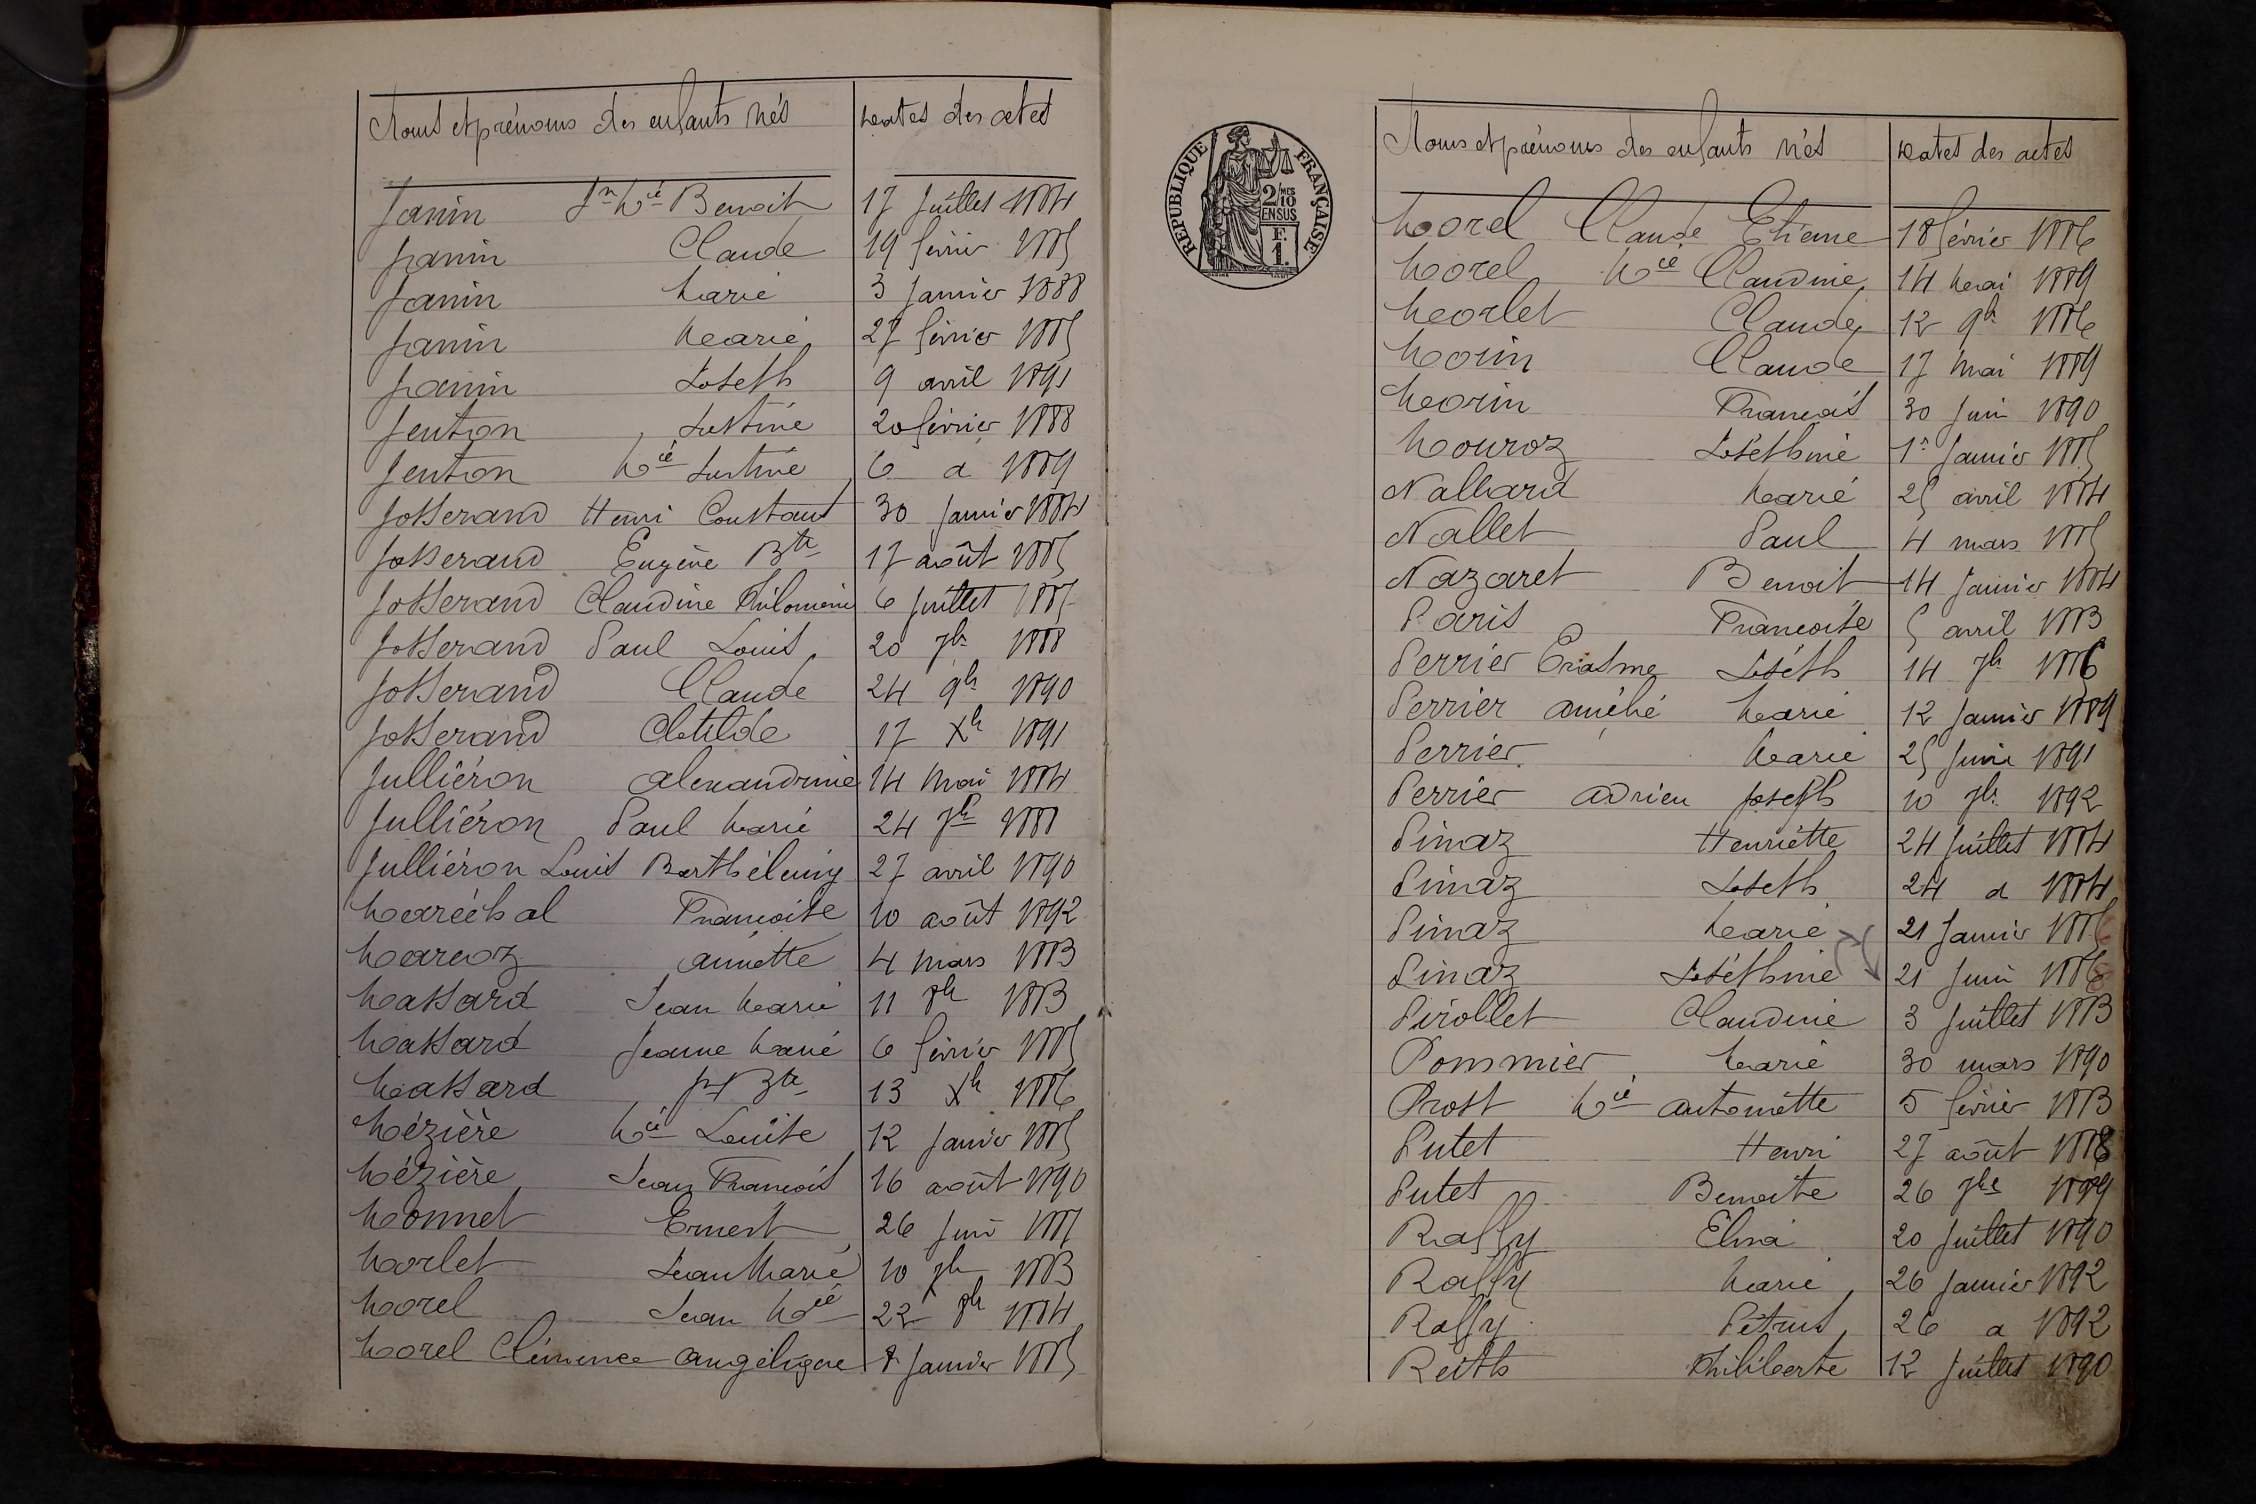 Noms et prénoms des enfants nés Dates des actes
Janin Jn Mie Benoit 17 Juillet 1884
Janin Claude 19 février 1885
Janin Marie 3 Janvier 1888
Janin Marie 27 février 1885
Janin Joseph 9 avril 1891
Jenton Justine 20 février 1888
Jenton Mie Justine 6 d 1889
Josserand Henri Constant 30 Janvier 1884
Josserand Eugène Bte 17 août 1885
Josserand Claudine Philomène 6 Juillet 188
Josserand Paul Louis 20 7bre 1888
Josserand Claude 24 9bre 1890
Josserand Clotilde 17 Xbre 1891
Julliéron Alexandrine 14 Mai 1884
Julliéron Paul Marie 24 7bre 1888
Julliéron Louis Barthélemy 27 avril 1890
Maréchal Françoise 10 août 1892
Marcoz Annette 4 Mars 1883
Massard Jean Marie 11 8bre 1883
Massard Jeanne Marie 6 février 1885
Massard Jn Bte 13 Xbre 1886
Mézière Mie Louise 12 Janvier 1885
Mézière Jean François 16 août 1890
Monnet Ernest 26 Juin
Morlet Jean Marie 10 7bre 1883
Morel Jean Mie 22 8bre 1884
Morel Clémence Angélique 8 Janvier 1885
RÉPUBLIQUE FRANÇAISE
2/10 MES
EN SUS
F.
1.
Noms et prénoms des enfants nés Dates des actes
Morel Claude Etienne 18 février 1886
Morel Mie Claudine 14 Mai 1889
Morlet Claude 12 9bre 1886
Morin Claude 17 Mai 1889
Morin François 30 Juin 1890
Mouroz Joséphine 1er Janvier 1885
Nallard Marie 25 avril 1884
Nallet Paul 4 mars 1885
Nazaret Benoit 14 Janvier 1884
Paris Françoise 5 avril 1883
Perrier Erasme Joseph 14 7bre 1886
Perrier Amélie Marie 12 Janvier 1889
Perrier Marie 25 Juin 1891
Perrier Adrien Joseph 10 7bre 1892
Pinaz Henriette 24 Juillet 1884
Pinaz Joseph 24 d 1884
Pinaz Marie 21 Janvier 1886
Pinaz Joséphine 21 Juin 1888
Pirollet Claudine 3 Juillet 1883
Pommier Marie 30 mars 1890
Prost Mie Antoinette 5 février 1883
Putet Henri 27 août 1888
Putet Benoite 26 7bre 1889
Raffy Elina 20 Juillet 1890
Raffy Marie 26 Janvier 1892
Raffy Pétrus 26 d 1892
Reith Philiberte 12 Juillet 1890